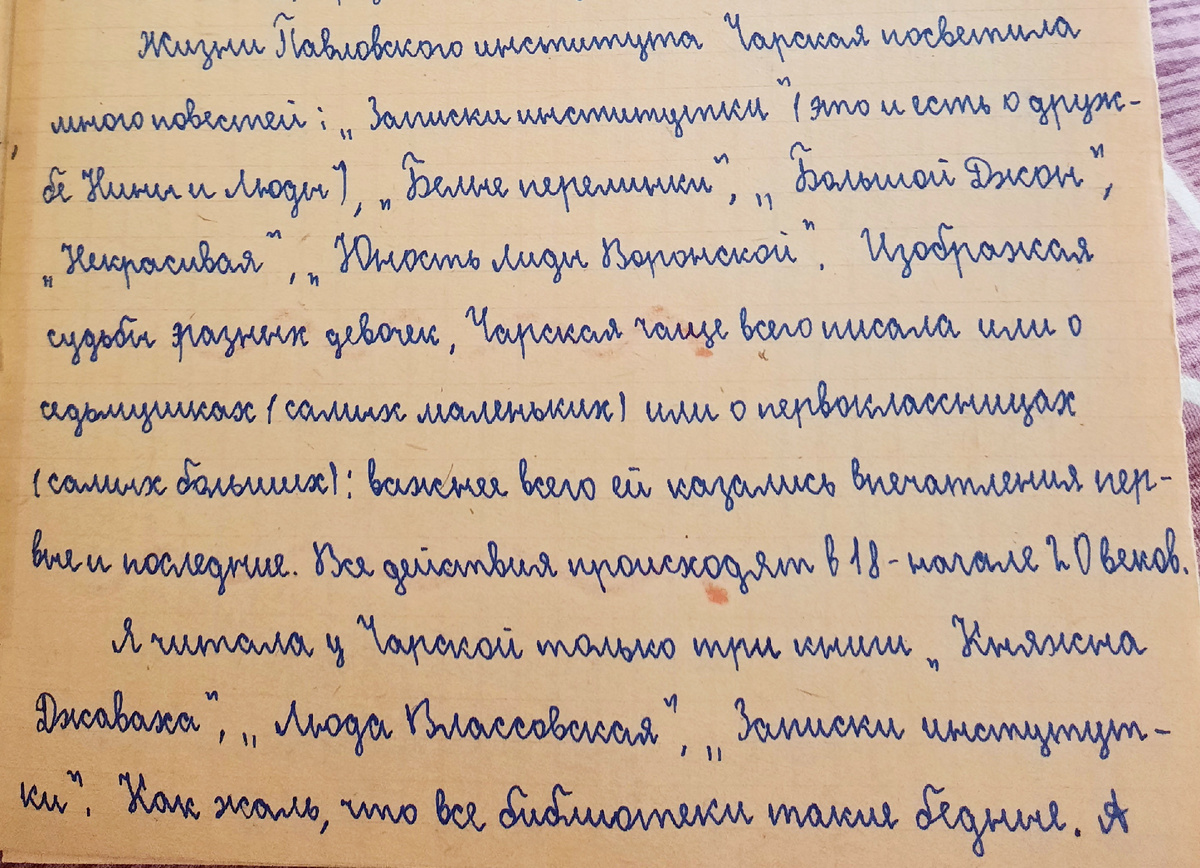 Жизни Павловского института Чарская посветила
много повестей: „Записки институтки" (это и есть о друж-
бе Нины и Люды), „Белые перелинки", „Большой Джон",
„Некрасивая", „Юность Лиды Воронской". Изображая
судьбы разных девочек, Чарская чаще всего писала или о
седьмушках (самых маленьких) или о первоклассницах
(самых больших): важнее всего ей казались впечатления пер-
вые и последние. Все действия происходят в 18-начале 20 веков.
Я читала у Чарской только три книги „Княжна
Джаваха", „Люда Влассовская", „Записки институт-
ки". Как жаль, что все библиотеки такие бедные. А